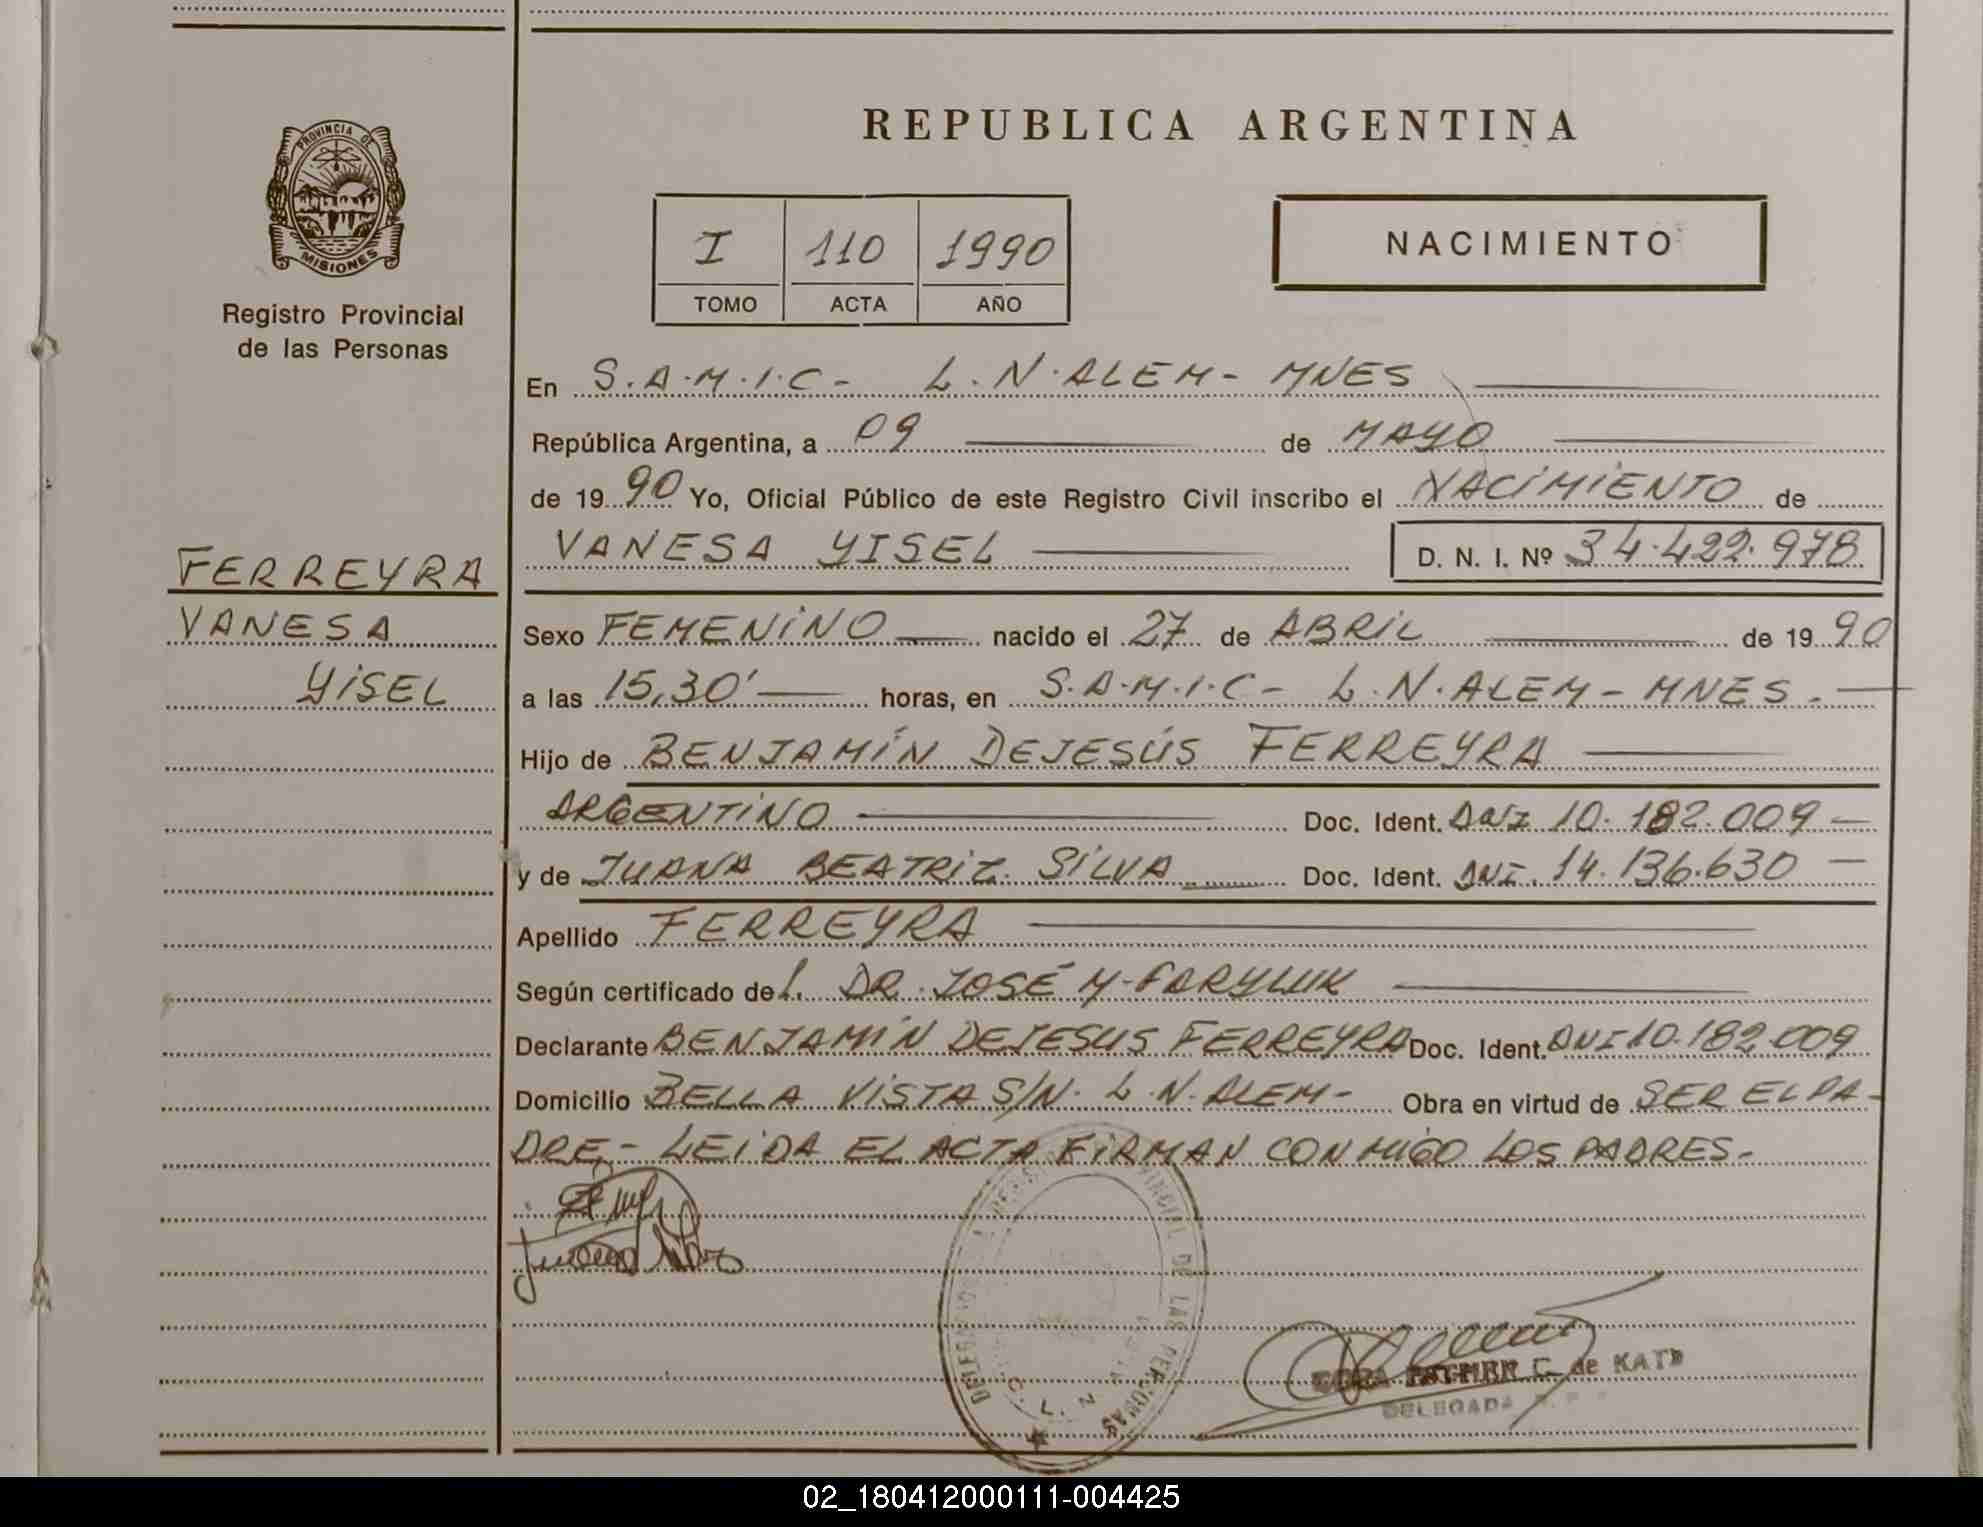 PROVINCIA DE
MISIONES
Registro Provincial
de las Personas
FERREYRA
VANESA
YISEL
REPUBLICA ARGENTINA
I 110 1990
TOMO ACTA AÑO
NACIMIENTO
En S.A.M.I.C- L.N.ALEM- MNES
República Argentina, a 09 de MAYO
de 19 90 Yo, Oficial Público de este Registro Civil inscribo el NACIMIENTO de
VANESA YISEL D. N. I. Nº 34.422.978
Sexo FEMENINO nacido el 27 de ABRIL de 19 90
a las 15,30' horas, en S.A.M.I.C- L.N.ALEM-MNES.-
Hijo de BENJAMÍN DEJESÚS FERREYRA
ARGENTINO Doc. Ident. DNI 10.182.009-
y de JUANA BEATRIZ SILVA Doc. Ident. DNI. 14.136.630-
Apellido FERREYRA
Según certificado del. DR. JOSÉ M. FARYLUK
Declarante BENJAMÍN DEJESUS FERREYRA Doc. Ident. DNI 10.182.009
Domicilio BELLA VISTA S/N. L.N.ALEM- Obra en virtud de SER EL PA-
DRE- LEIDA EL ACTA FIRMAN CONMIGO LOS PADRES.-
Juana Silva
C. de KATZ
DELEGADA
02_180412000111-004425